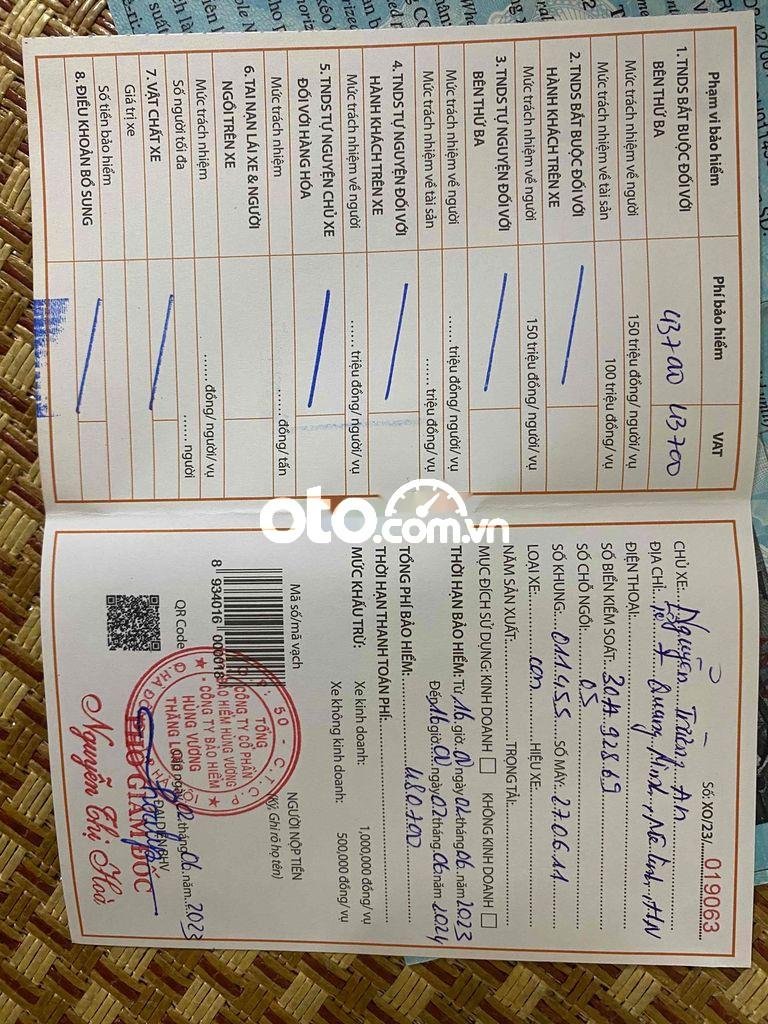 Phạm vi bảo hiểm Phí bảo hiểm VAT
1. TNDS BẮT BUỘC ĐỐI VỚI
BÊN THỨ BA 43700 43700
Mức trách nhiệm về người 150 triệu đồng/ người/ vụ
Mức trách nhiệm về tài sản 100 triệu đồng/ vụ
2. TNDS BẮT BUỘC ĐỐI VỚI
HÀNH KHÁCH TRÊN XE
Mức trách nhiệm về người 150 triệu đồng/ người/ vụ
3. TNDS TỰ NGUYỆN ĐỐI VỚI
BÊN THỨ BA
Mức trách nhiệm về người ....... triệu đồng/ người/ vụ
Mức trách nhiệm về tài sản ....... triệu đồng/ vụ
4. TNDS TỰ NGUYỆN ĐỐI VỚI
HÀNH KHÁCH TRÊN XE
Mức trách nhiệm về người ....... triệu đồng/ người/ vụ
5. TNDS TỰ NGUYỆN CHỦ XE
ĐỐI VỚI HÀNG HÓA
Mức trách nhiệm ....... đồng/ tấn
6. TAI NẠN LÁI XE & NGƯỜI
NGỒI TRÊN XE
Mức trách nhiệm ....... đồng/ người/ vụ
Số người tối đa ....... người
7. VẬT CHẤT XE
Giá trị xe
Số tiền bảo hiểm
8. ĐIỀU KHOẢN BỔ SUNG
oto.com.vn
Số: XO/23/... 019063
CHỦ XE: Nguyễn Trường An
ĐỊA CHỈ: Quang Minh, Mê Linh, HN
ĐIỆN THOẠI:
SỐ BIỂN KIỂM SOÁT: 30A 92869
SỐ CHỖ NGỒI: 05
SỐ KHUNG: 011455 SỐ MÁY: 270611
LOẠI XE: con HIỆU XE:
NĂM SẢN XUẤT: TRỌNG TẢI:
MỤC ĐÍCH SỬ DỤNG: KINH DOANH KHÔNG KINH DOANH
THỜI HẠN BẢO HIỂM: Từ 16 giờ ngày 02 tháng 06 năm 2023
Đến 16 giờ ngày 02 tháng 06 năm 2024
TỔNG PHÍ BẢO HIỂM: 480.700
THỜI HẠN THANH TOÁN PHÍ:
MỨC KHẤU TRỪ: Xe kinh doanh: 1,000,000 đồng/ vụ
Xe không kinh doanh: 500,000 đồng/ vụ
Mã số/mã vạch NGƯỜI NỘP TIỀN
(Ký, Ghi rõ họ tên)
8 934016 000018
QR Code ngày 02 tháng 06 năm 2023
ĐẠI DIỆN BHV
TỔNG
CÔNG TY CỔ PHẦN
BẢO HIỂM HÙNG VƯƠNG
CÔNG TY BẢO HIỂM
HÙNG VƯƠNG
THĂNG LONG
PHÓ GIÁM ĐỐC
Nguyễn Thị Hoà